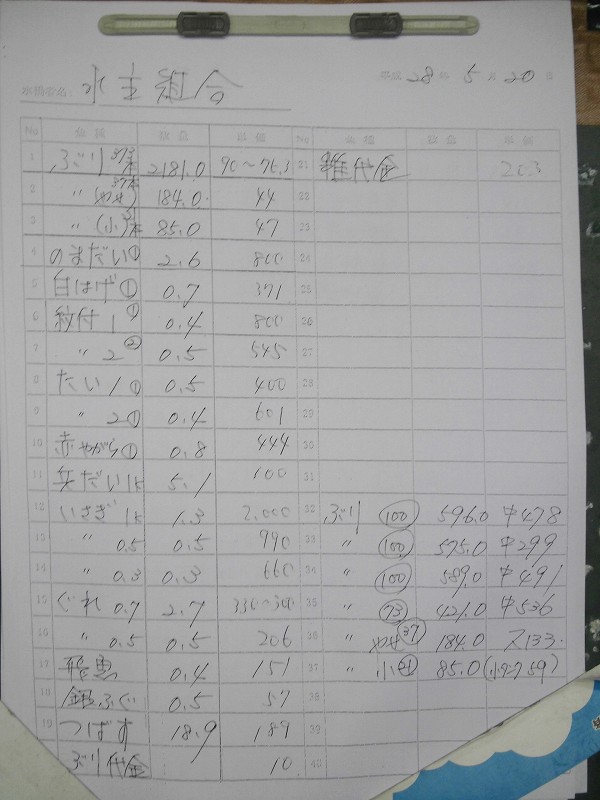 水主組合
平成 28 年 5 月 20 日
No 魚種 数量 金額 No 魚種 数量 金額
1 ぶり 2181.0 90~76.3 21 雑代金 203
2 〃 (やせ) 184.0 44 22
3 〃 (小) 85.0 47 23
4 のまだい① 2.6 800 24
5 白はげ① 0.7 371 25
6 紋付1① 0.4 800 26
7 〃 2② 0.5 545 27
8 たい1① 0.5 400 28
9 〃 2① 0.4 601 29
10 赤やがら① 0.8 444 30
11 矢だい 5.1 100 31
12 いさぎ 1.3 2,000 32 ぶり (100) 596.0 中478
13 〃 0.5 0.5 990 33 〃 (100) 575.0 中299
14 〃 0.3 0.3 660 34 〃 (100) 589.0 中491
15 ぐれ 0.7 2.7 330~300 35 〃 (73) 421.0 中536
16 〃 0.5 0.5 206 36 〃 やせ(37) 184.0 ス133.
17 飛魚 0.4 151 37 〃 小 85.0
18 銀ふぐ 0.5 57 38
19 つばす 18.9 189 39
ぶり代金 10 40